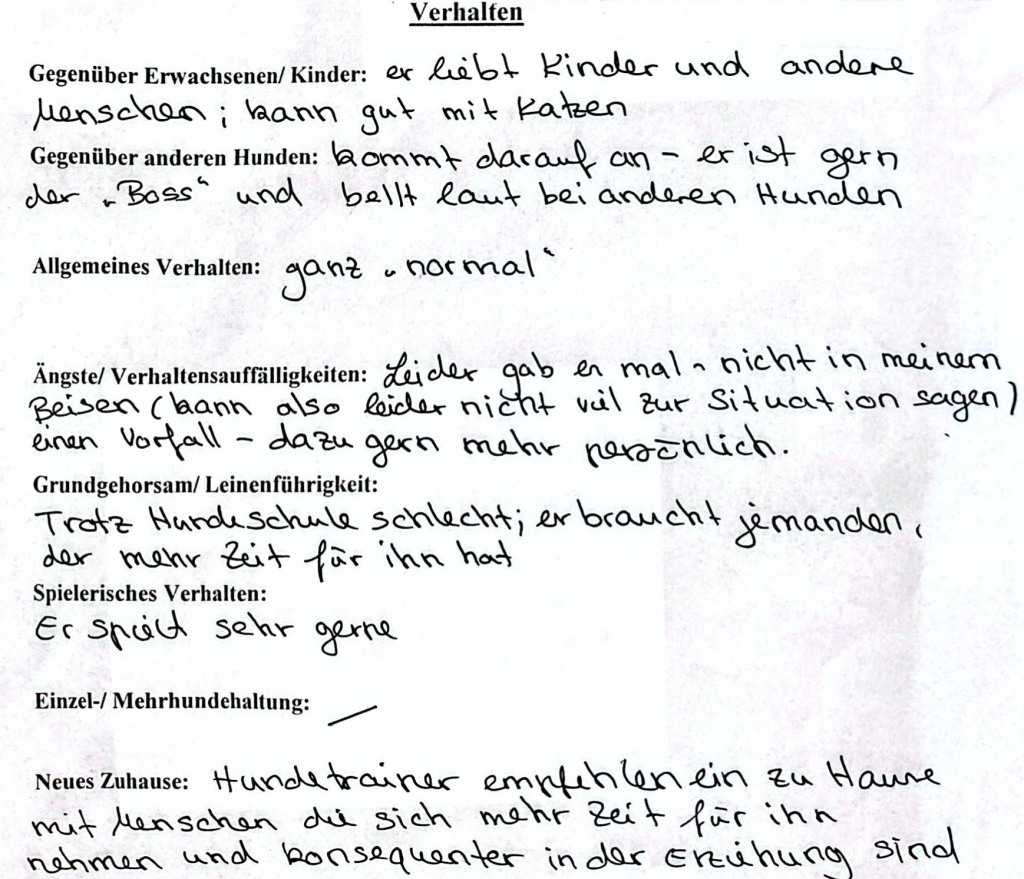 Verhalten
Gegenüber Erwachsenen/ Kinder: er liebt Kinder und andere
Menschen; kann gut mit Katzen
Gegenüber anderen Hunden: kommt darauf an - er ist gern
der „Boss“ und bellt laut bei anderen Hunden
Allgemeines Verhalten: ganz „normal“
Ängste/ Verhaltensauffälligkeiten: Leider gab es mal - nicht in meinem
Beisen (kann also leider nicht viel zur Situation sagen)
einen Vorfall - dazu gern mehr persönlich.
Grundgehorsam/ Leinenführigkeit:
Trotz Hundeschule schlecht; er braucht jemanden,
der mehr Zeit für ihn hat
Spielerisches Verhalten:
Er spielt sehr gerne
Einzel-/ Mehrhundehaltung: /
Neues Zuhause: Hundetrainer empfehlen ein zu Hause
mit Menschen die sich mehr Zeit für ihn
nehmen und konsequenter in der Erziehung sind